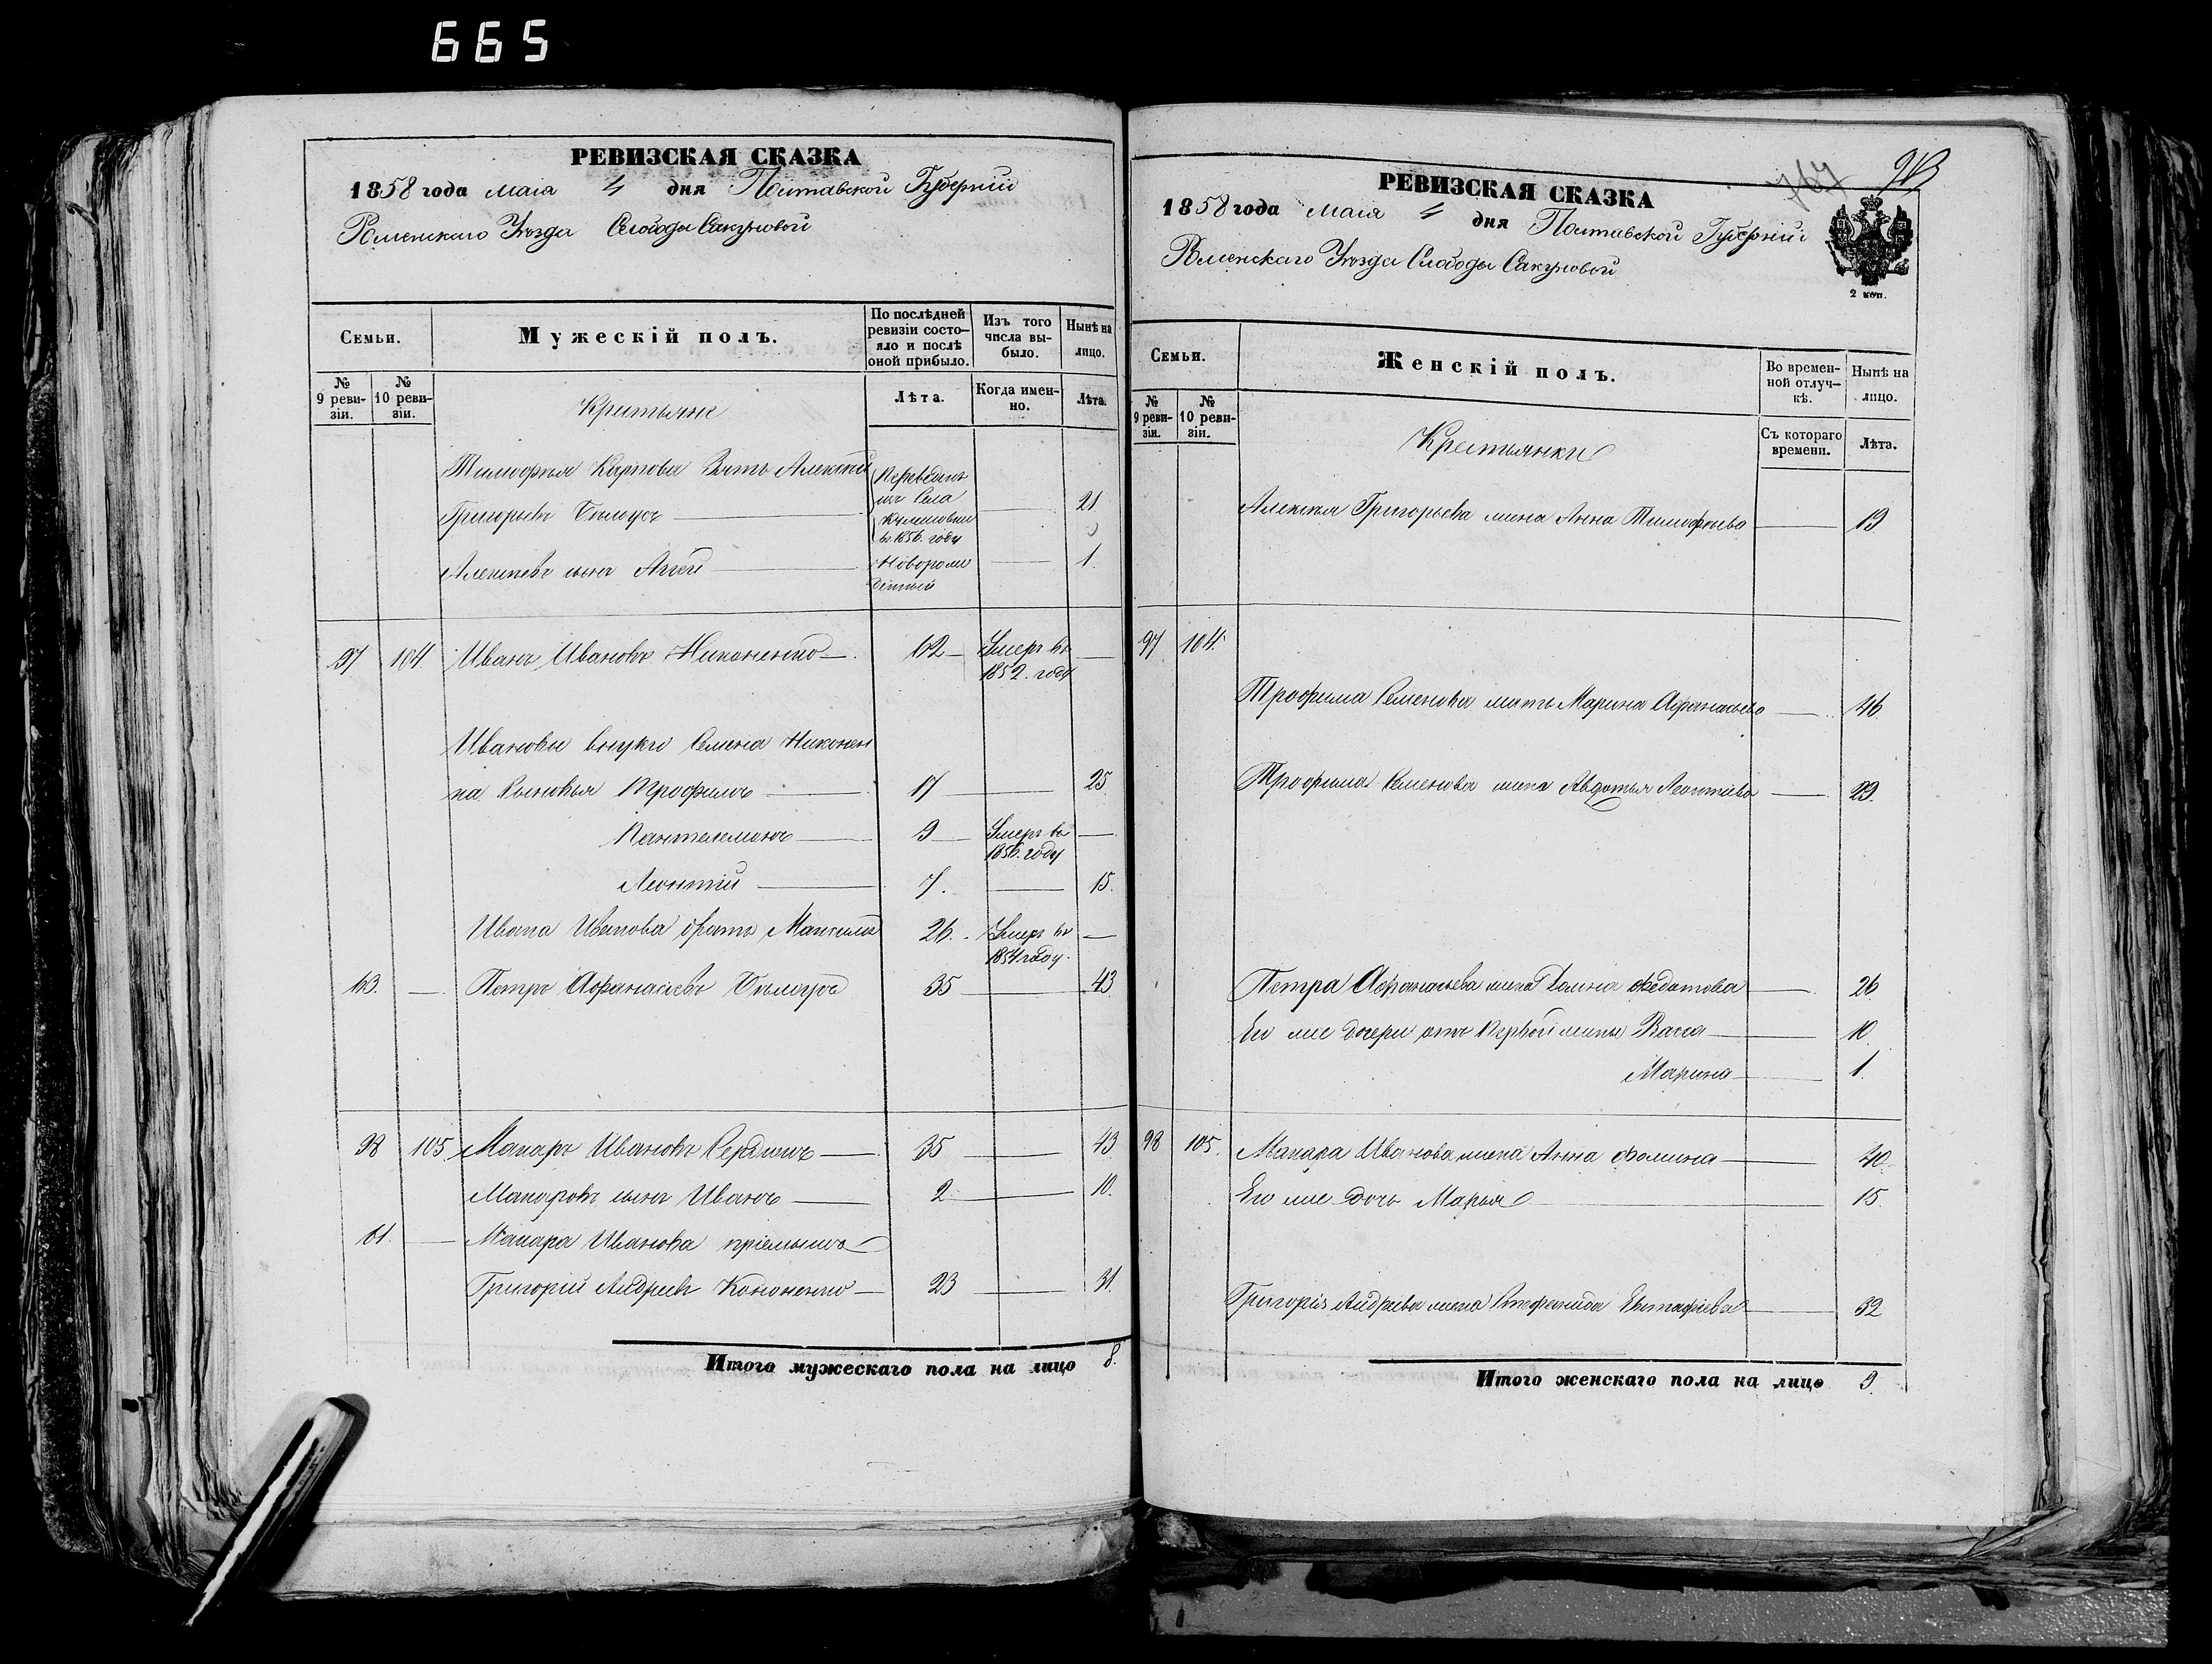 665
РЕВИЗСКАЯ СКАЗКА
1858 года маія 4 дня Полтавской Губерніи
Роменскаго Уезда Слободы Сакуновой
Семьи.
Мужескій полъ.
По послѣдней ревизіи состояло и послѣ оной прибыло.
Изъ того числа выбыло.
Нынѣ на лицо.
№ 9 ревизіи.
№ 10 ревизіи.
Крестьяне
Лѣта.
Когда именно.
Лѣта.
Тимофея Карпова Зять Алексей
Григорьевъ Белоусъ
Переведенъ
изъ Села
въ 1856. году
21
Алексеевъ сынъ Аггей
Новорож
денный
1.
97 104. Иванъ Ивановъ Никоненко 62 Умеръ въ
1852. году
Ивановы внуки Семена Никонен
ка Сыновья Трофимъ 17 25
Пантелемонъ 9 Умеръ въ
1856. году
Леонтій 7. 15.
Ивана Иванова братъ Максимъ 26. Умеръ въ
1854 году.
63. Петръ Афанасьевъ Белоусъ 35 43
98 105. Макаръ Ивановъ Сердюкъ 35 43
Макаровъ сынъ Иванъ 2 10.
61. Макара Иванова пріемышъ
Григорій Андреевъ Кононенко 23 31.
Итого мужескаго пола на лицо 8.
767
РЕВИЗСКАЯ СКАЗКА
1858 года маія 4 дня Полтавской Губерніи
Роменскаго Уезда Слободы Сакуновой
2 коп.
Семьи.
Женскій полъ.
Во временной отлучкѣ.
Нынѣ на лицо.
№ 9 ревизіи.
№ 10 ревизіи.
Крестьянки
Съ котораго времени.
Лѣта.
Алексея Григорьева жена Анна Тимофеева 19
97 104.
Трофима Семенова мать Марина Афанасьева 46
Трофима Семенова жена Авдотья Леонтіева 29.
Петра Афанасьева жена Домна Федотова 26
Его же дочери отъ первой жены Васса 10.
Марина 1.
98 105. Макара Иванова жена Анна Фомина 40.
Его же дочь Марья 15.
Григорія Андреева жена Стефанида Евстафіева 32
Итого женскаго пола на лицо 9.